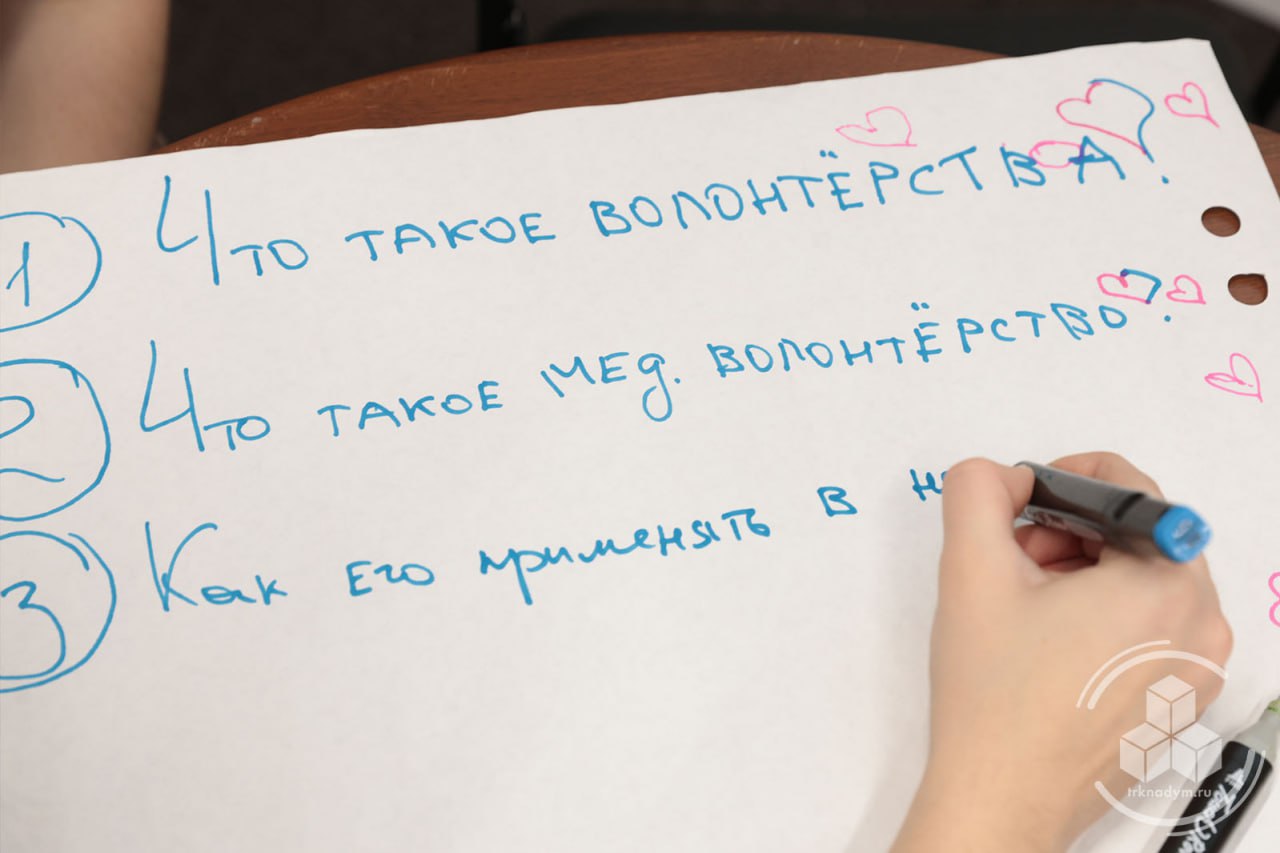 1 Что такое волонтёрства?
2 Что такое мед. волонтёрство?
3 Как его применять в
trknadym.ru